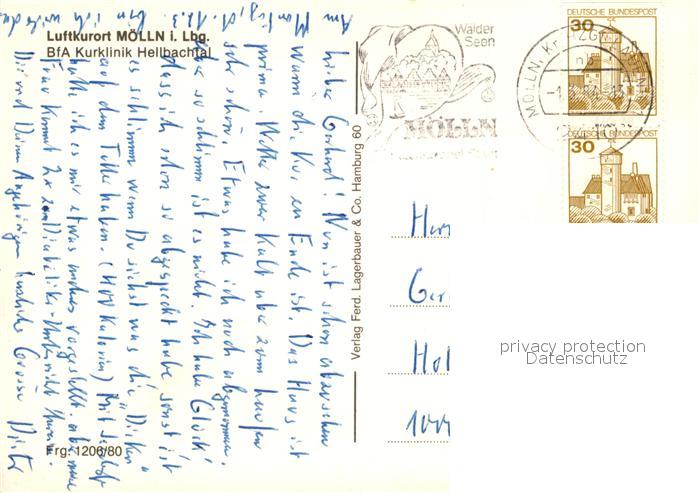 Luftkurort MÖLLN i. Lbg.
BfA Kurklinik Hellbachtal
Am Montag, d. 12.3. bin ich wieder
Lieber Gerhard! Nun ist schon abzusehen
wann die Kur zu Ende ist. Das Haus ist
prima. Wetter zwar kalt aber zum laufen
sehr schön. Etwas habe ich noch abgenommen.
so schlimm ist es nicht. Ich habe Glück
dass ich schon so abgespeckt habe sonst ist
es schlimm wenn Du siehst was die "Dicken"
auf dem Teller haben. (Kalorien) Mit
hatte ich es mir etwas anders vorgestellt. aber
2x zum Diabetiker-Unterricht
Dir und Deinen Angehörigen herzliche Grüsse Dieter
Frg: 1206/80
Verlag Ferd. Lagerbauer & Co. Hamburg 60
Wälder
Seen
MÖLLN
MÖLLN, Kr
DEUTSCHE BUNDESPOST
30
DEUTSCHE BUNDESPOST
30
Her
Ger
Hol
1000
privacy protection
Datenschutz